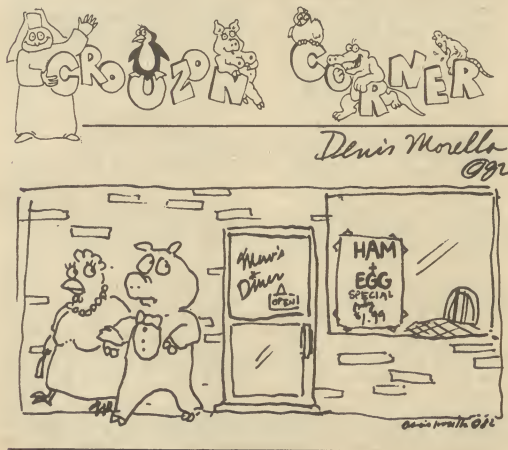 CROUZON CORNER
Denis Morella
©82
Diner
OPEN!
HAM
+
EGG
SPECIAL
$1.99
Denis Morella ©82